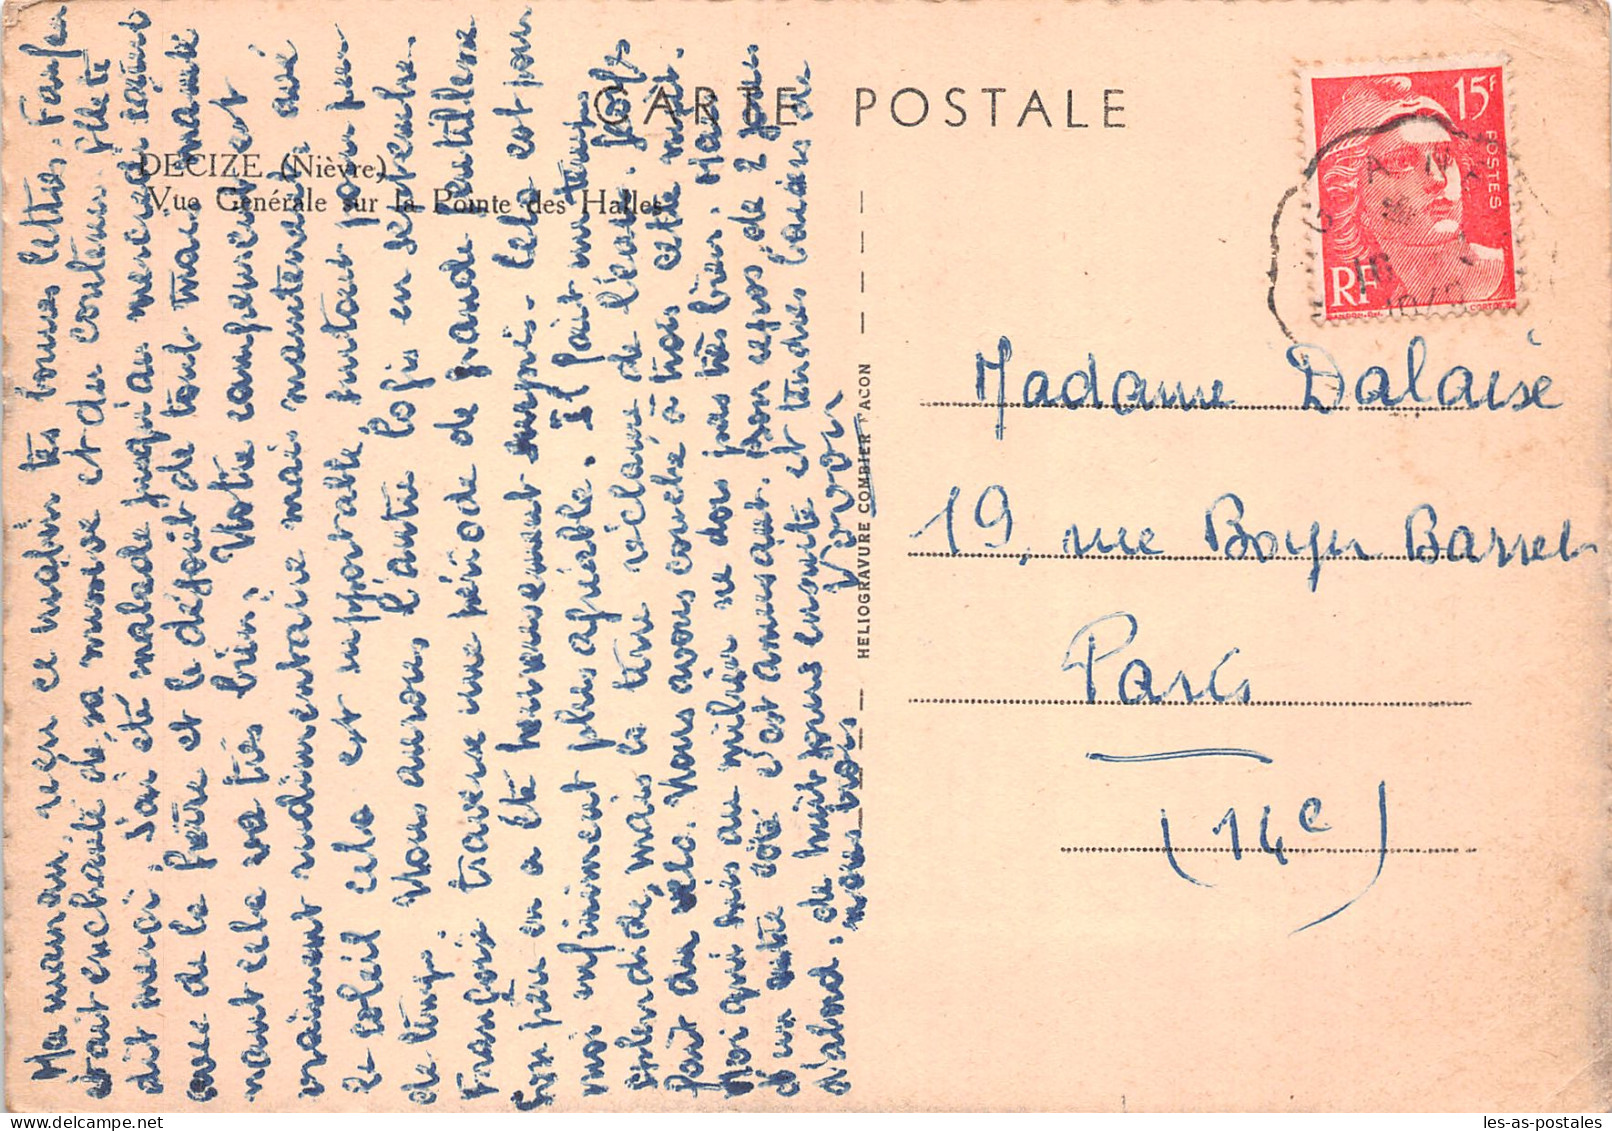 CARTE POSTALE
DECIZE (Nièvre)
Vue Générale sur la Pointe des Halles
15f
POSTES
RF
HELIOGRAVURE COMBIER MACON
Madame Dalaise
19, rue Boyer Barret
Paris
(14e)
Ma maman, reçu ce matin tes bonnes lettres. Fanfan
était enchanté de sa missive et du contenu. Il te
dit merci. J'ai été malade jusqu'au mercredi
avec de la fièvre et le dégoût de tout mais mainte
nant cela va très bien. Notre campement est
vraiment rudimentaire mais maintenant
le soleil cela est supportable, surtout pour peu
de temps. Nous aurons l'autre logis en septembre.
Françoise traverse une période de grande gentillesse
Son père en a été heureusement surpris. Cela est pour
moi infiniment plus agréable. Il fait un temps
splendide, mais la terre réclame de l'eau.
part au vélo. Nous avons couché à trois cette nuit.
Moi qui suis au milieu ne dors pas très bien. Mais
d'un autre côté c'est amusant. Bon repos de 2 jours
d'abord : de huit jours ensuite et tendres baisers de
nous trois
Vovon
les-as-postales